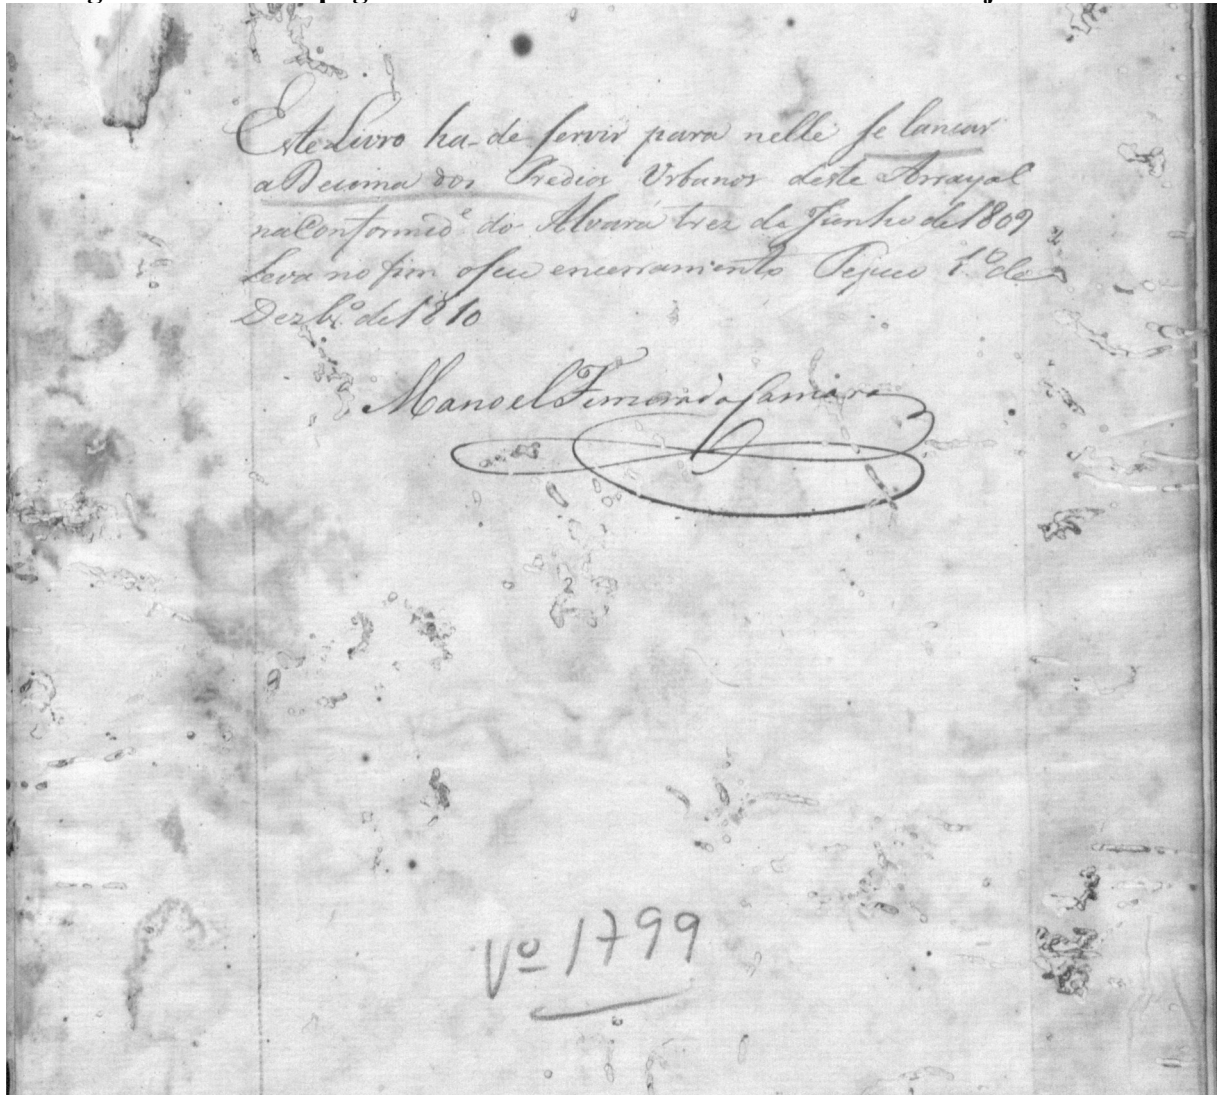 Este Livro ha-de servir para nelle se lansar
a Decima dos Predios Urbanos deste Arrayal
na Conformid.e do Alvará trez de Junho de 1809
Leva no fim o seu encerramento Tejuco 1.º de
Dezbr.º de 1810
Manoel Ferreira da Camara
Vº 1799